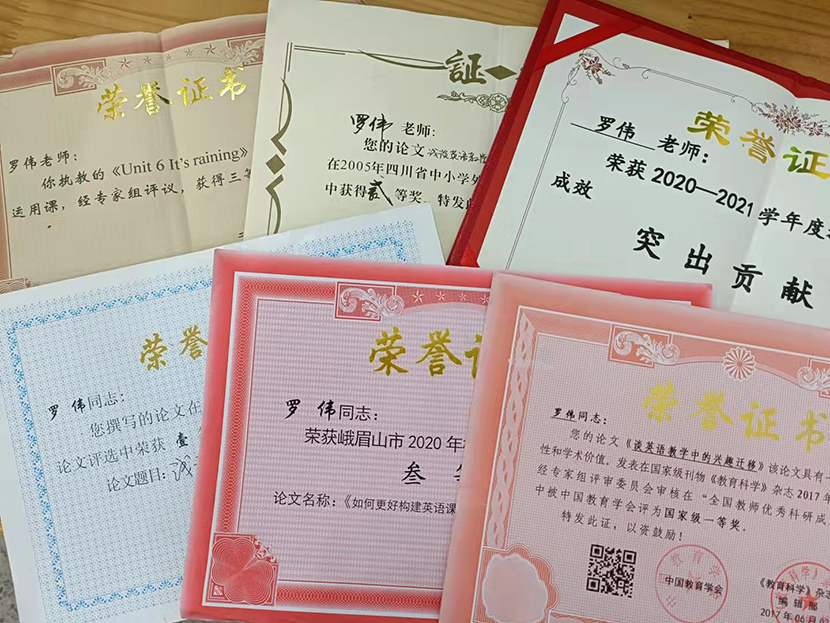 荣誉证书
罗伟老师：
你执教的《Unit 6 It's raining》
运用课，经专家组评议，获得三等
証
罗伟 老师：
您的论文
在2005年四川省中小学外
中获得贰等奖，特发此
荣誉证
罗伟 老师：
荣获2020—2021学年度
成效
突出贡献
荣誉
罗伟同志：
您撰写的论文在
论文评选中荣获 壹
论文题目：
荣誉证
罗伟同志：
荣获峨眉山市2020年
叁等
论文名称：《如何更好构建英语课
荣誉证书
罗伟同志：
您的论文《谈英语教学中的兴趣迁移》该论文具有一
性和学术价值，发表在国家级刊物《教育科学》杂志2017年
经专家组评审委员会审核在“全国教师优秀科研成
中被中国教育学会评为国家级一等奖。
特发此证，以资鼓励！
中国教育学会
《教育科学》杂志
编辑部
2017年06月0